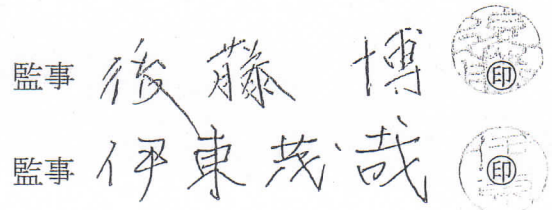 監事 後藤 博 ㊞
監事 伊東茂哉 ㊞